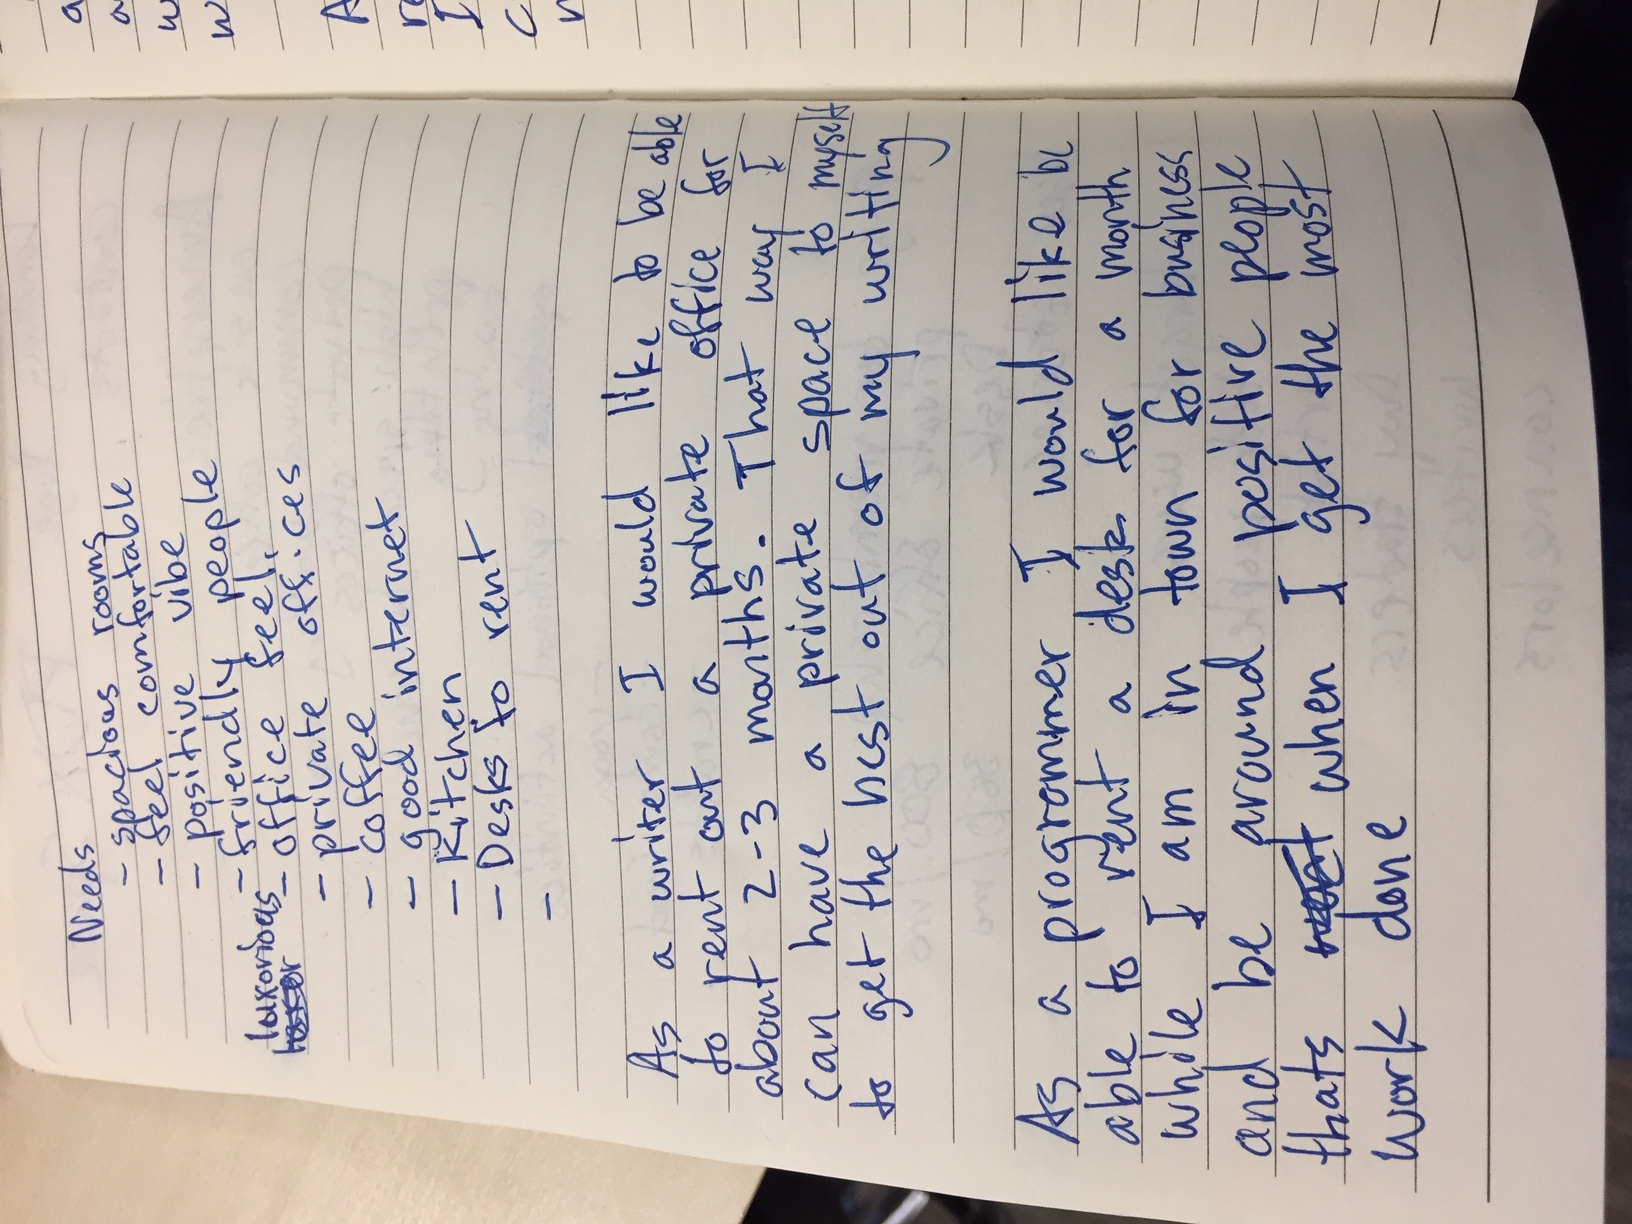 Needs
- spacious rooms
- feel comfortable
- positive vibe
- friendly people
luxorious - office feel.
- private offices
- coffee
- good internet
- Kitchen
- Desks to rent
-
As a writer I would like to be able
to rent out a private office for
about 2-3 months. That way I
can have a private space to myself
to get the best out of my writing
As a programmer I would like be
able to rent a desk for a month
while I am in town for business
and be around positive people
thats when I get the most
work done